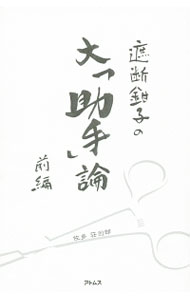 遮断鉗子の
大「助手」論
前編
佐多
アトムス